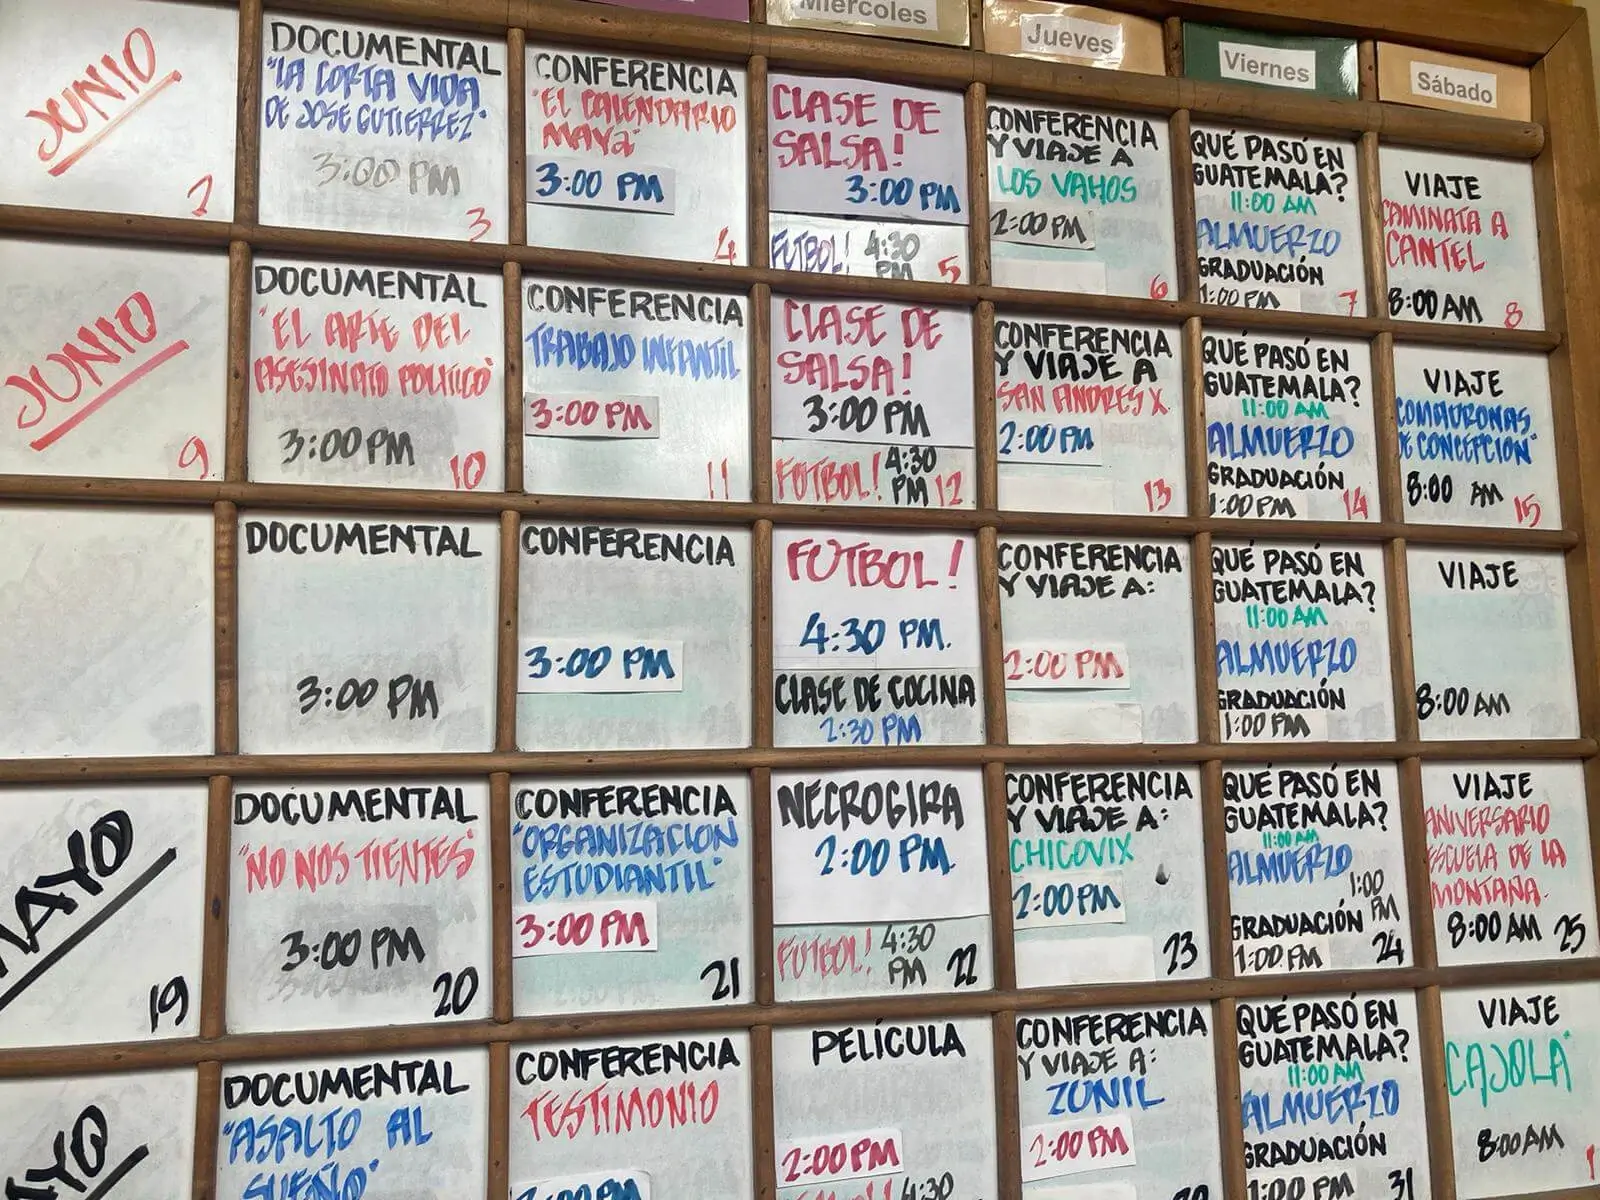 Miércoles
Jueves
Viernes
Sábado
JUNIO
2
DOCUMENTAL
"LA CORTA VIDA
DE JOSE GUTIERREZ"
3:00 PM
3
CONFERENCIA
"EL CALENDARIO
MAYA"
3:00 PM
4
CLASE DE
SALSA!
3:00 PM
FUTBOL! 4:30
PM 5
CONFERENCIA
Y VIAJE A
LOS VAHOS
2:00 PM
6
QUÉ PASÓ EN
GUATEMALA?
11:00 AM
ALMUERZO
GRADUACIÓN
1:00 PM 7
VIAJE
CAMINATA A
CANTEL
8:00 AM 8
JUNIO
9
DOCUMENTAL
"EL ARTE DEL
ASESINATO POLITICO"
3:00 PM
10
CONFERENCIA
TRABAJO INFANTIL
3:00 PM
11
CLASE DE
SALSA!
3:00 PM
FUTBOL! 4:30
PM 12
CONFERENCIA
Y VIAJE A
SAN ANDRES X.
2:00 PM
13
QUÉ PASÓ EN
GUATEMALA?
11:00 AM
ALMUERZO
GRADUACIÓN
1:00 PM 14
VIAJE
DE CONCEPCION"
8:00 AM 15
DOCUMENTAL
3:00 PM
CONFERENCIA
3:00 PM
FUTBOL!
4:30 PM.
CLASE DE COCINA
2:30 PM
CONFERENCIA
Y VIAJE A:
2:00 PM
QUÉ PASÓ EN
GUATEMALA?
11:00 AM
ALMUERZO
GRADUACIÓN
1:00 PM
VIAJE
8:00 AM
MAYO
19
DOCUMENTAL
"NO NOS TIENTES"
3:00 PM
20
CONFERENCIA
"ORGANIZACION
ESTUDIANTIL"
3:00 PM
21
NECROGIRA
2:00 PM.
FUTBOL! 4:30
PM 22
CONFERENCIA
Y VIAJE A:
CHICOVIX
2:00 PM
23
QUÉ PASÓ EN
GUATEMALA?
11:00 AM
ALMUERZO
1:00
PM
GRADUACIÓN
1:00 PM 24
VIAJE
ANIVERSARIO
ESCUELA DE LA
MONTAÑA.
8:00 AM 25
MAYO
DOCUMENTAL
"ASALTO AL
SUEÑO"
CONFERENCIA
TESTIMONIO
PELÍCULA
2:00 PM
4:30
CONFERENCIA
Y VIAJE A:
ZUNIL
2:00 PM
QUÉ PASÓ EN
GUATEMALA?
11:00 AM
ALMUERZO
GRADUACIÓN
1:00 PM 31
VIAJE
CAJOLA"
8:00 AM
1